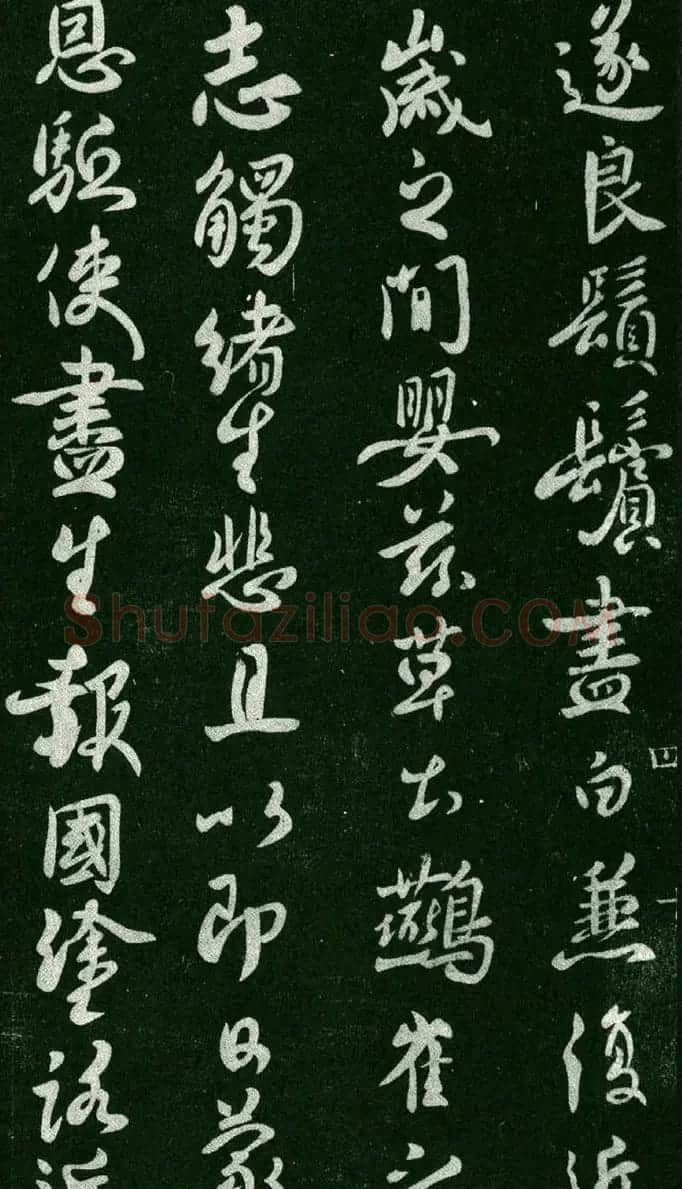 遂良鬚鬢盡白兼復近
歲之間嬰茲草土鷰雀之
志觸緒生悲且以即日蒙
恩駈使盡生報國塗路近
Shufaziliao.COM